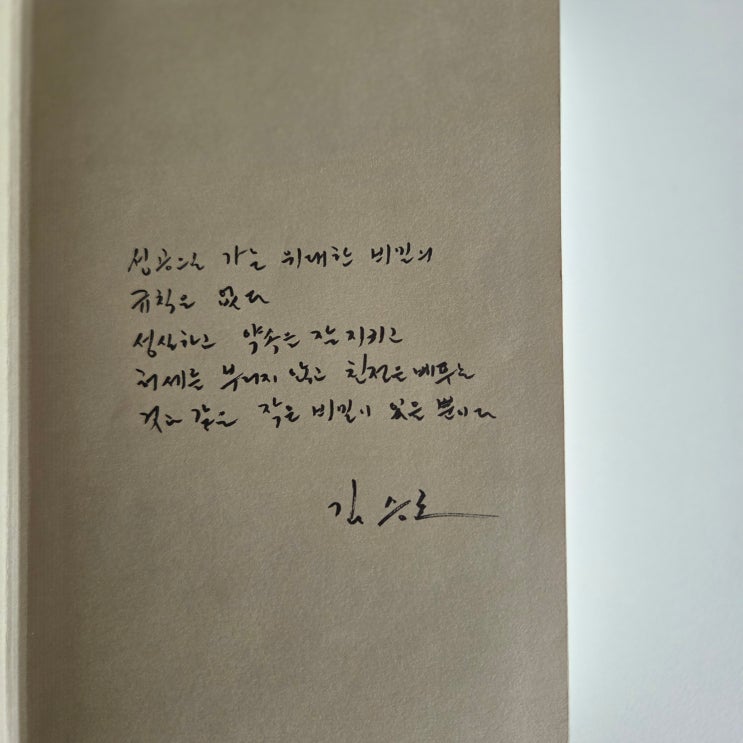 성공으로 가는 위대한 비밀의
규칙은 없다
성실하고 약속은 잘 지키고
허세는 부리지 않고 친절은 베푸는
것과 같은 작은 비밀이 있을 뿐이다
김승호